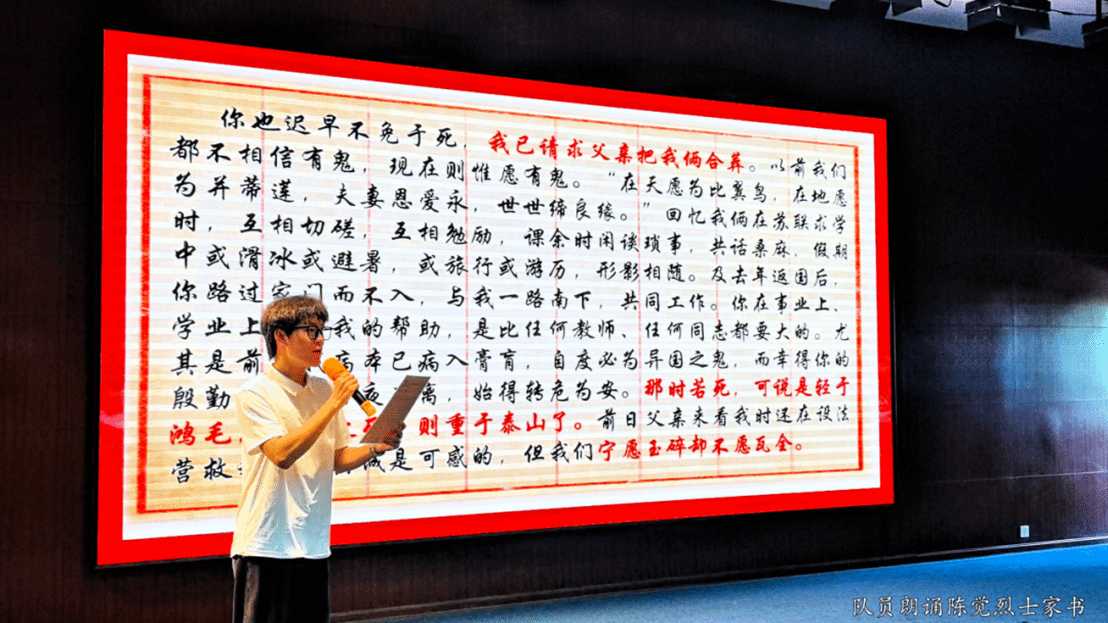 你也迟早不免于死，我已请求父亲把我俩合葬。以前我们
都不相信有鬼，现在则惟愿有鬼。“在天愿为比翼鸟，在地愿
为并蒂莲，夫妻恩爱永，世世缔良缘。”回忆我俩在苏联求学
时，互相切磋，互相勉励，课余时闲谈琐事，共话桑麻，假期
中或滑冰或避暑，或旅行或游历，形影相随。及去年返国后，
你路过家门而不入，与我一路南下，共同工作。你在事业上、
学业上我的帮助，是比任何教师、任何同志都要大的。尤
其是前病本已病入膏肓，自度必为异国之鬼，而幸得你的
殷勤夜离，始得转危为安。那时若死，可说是轻于
鸿毛，则重于泰山了。前日父亲来看我时还在设法
营救诚是可感的，但我们宁愿玉碎却不愿瓦全。
队员朗诵陈觉烈士家书